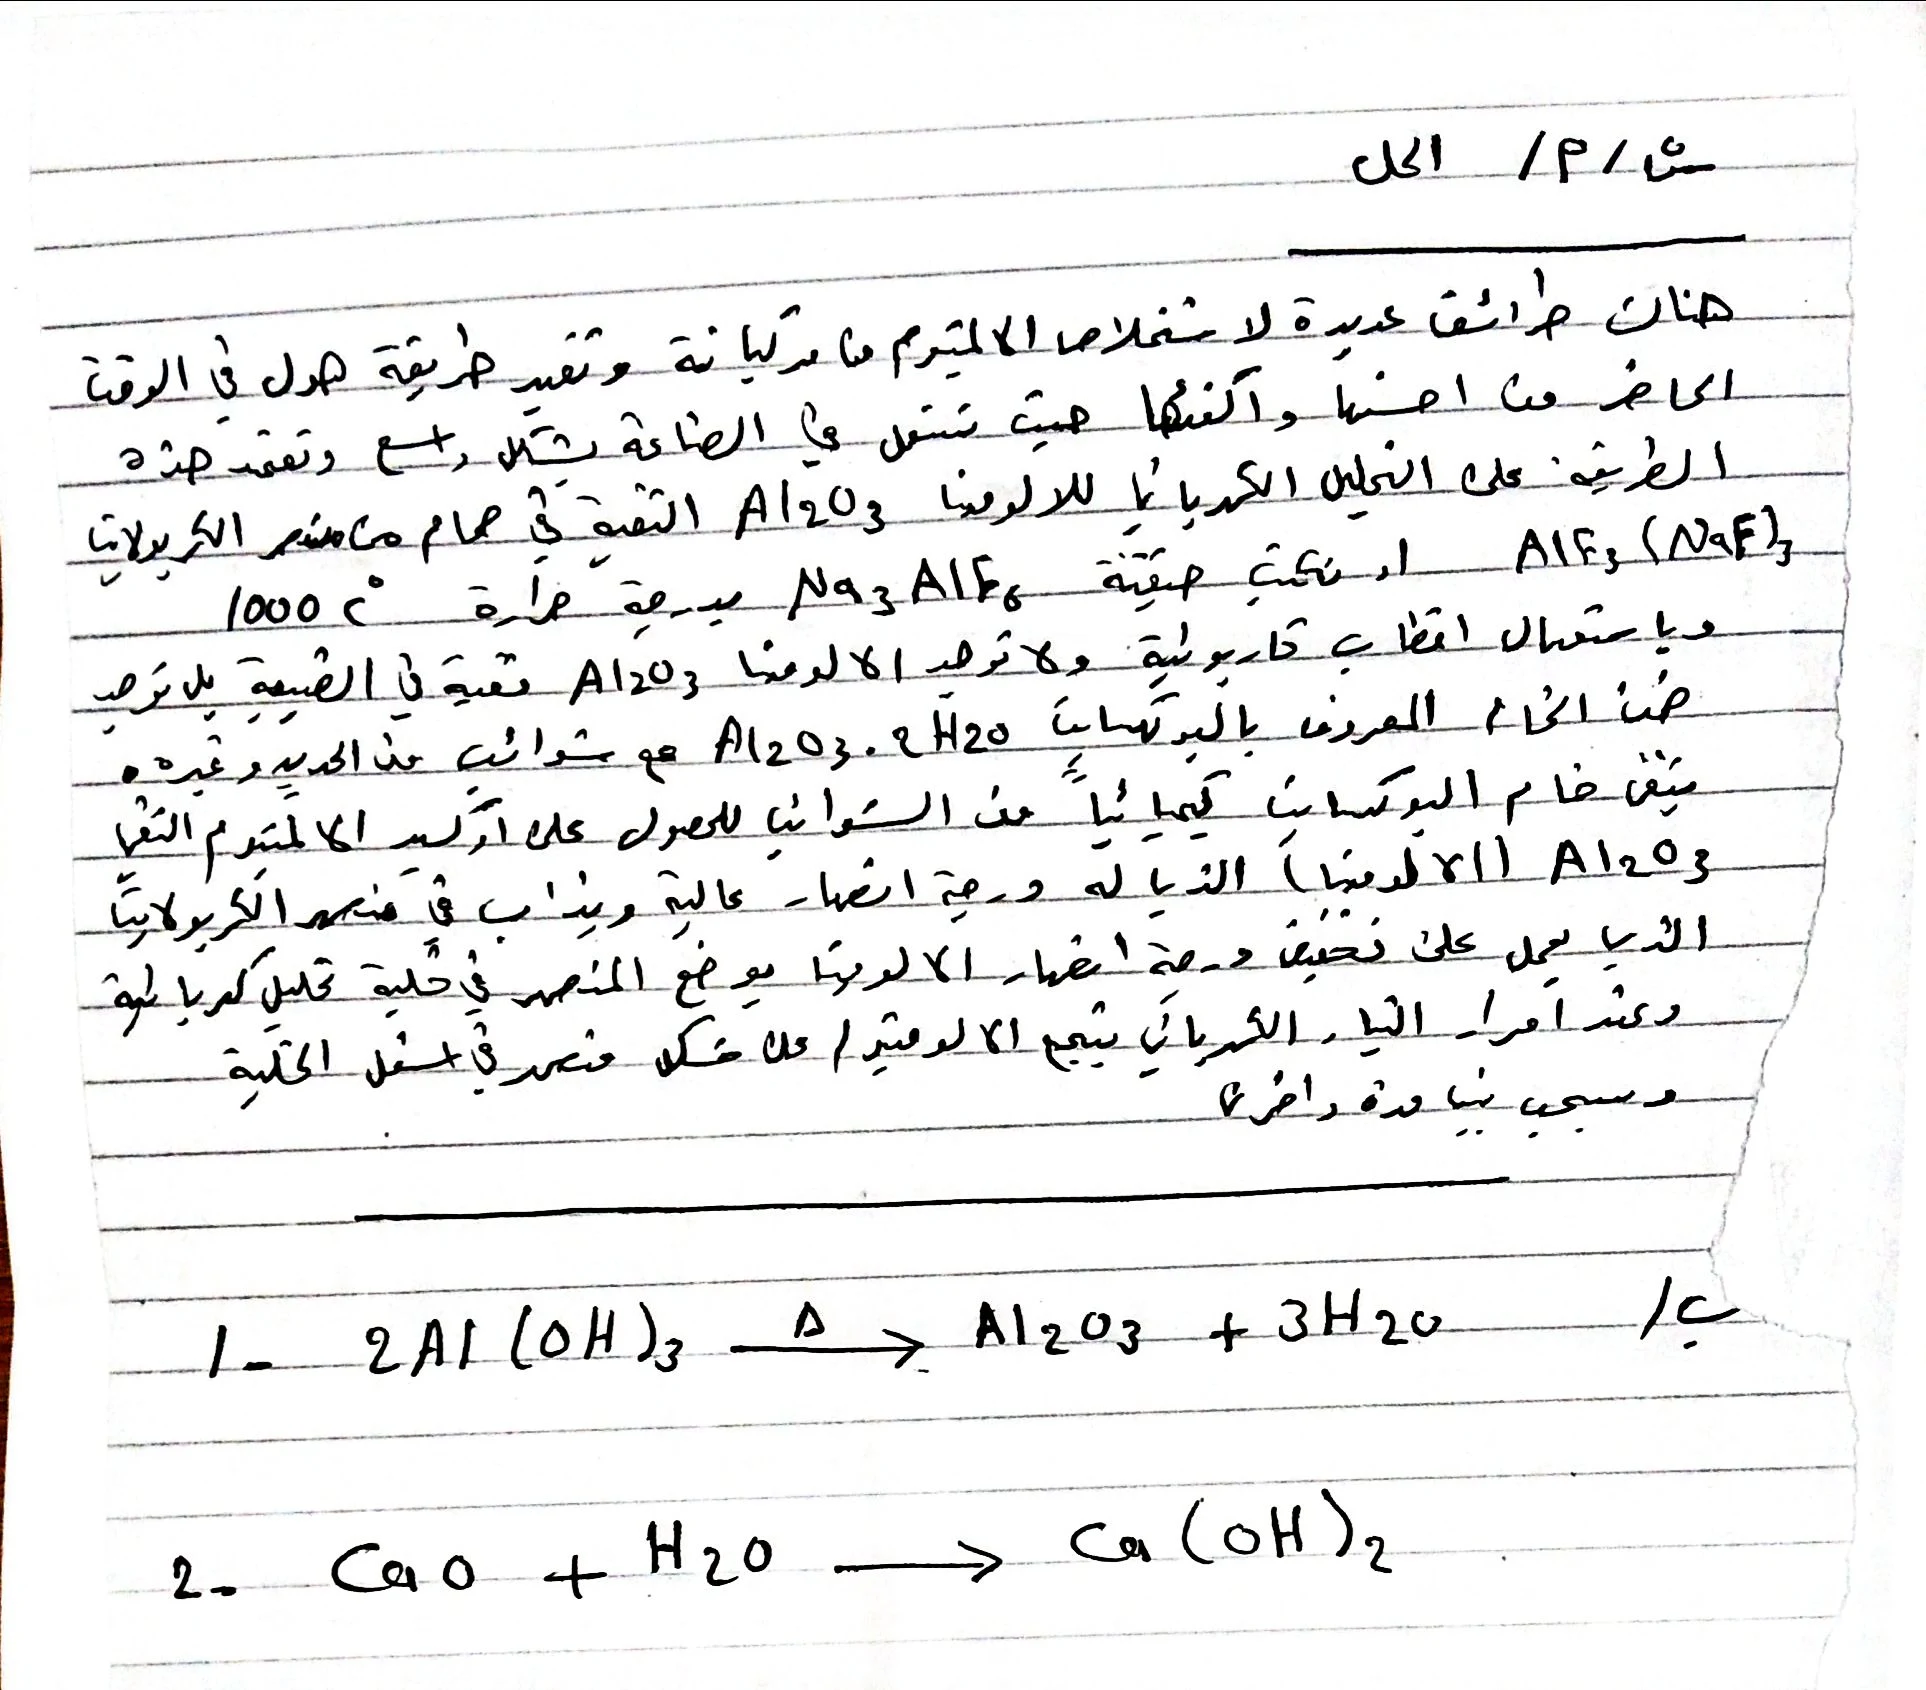 الحل
هناك طرائق عديدة لاستخلاص الالمنيوم من مركباته وتعتبر طريقة هول في الوقت
الحاضر من احسنها واكفئها حيث تستعمل في الصناعة بشكل واسع وتعتمد هذه
الطريقة على التحليل الكهربائي للالومينا Al2O3 النقية في حمام من منصهر الكريولايت
AlF3(NaF)3 او تكتب صيغته Na3AlF6 بدرجة حرارة 1000 C°
وباستعمال اقطاب كاربونية ولا توجد الالومينا Al2O3 نقية في الطبيعة بل توجد
ضمن الخام المعروف بالبوكسايت Al2O3.2H2O مع شوائب من الحديد وغيره.
ينقى خام البوكسايت كيميائياً من الشوائب للحصول على اوكسيد الالمنيوم النقي
Al2O3 (الالومينا) الذي له درجة انصهار عالية ويذاب في منصهر الكريولايت
الذي يعمل على تخفيض درجة انصهار الالومينا يوضع المنصهر في خلية تحليل كهربائية
وعند امرار التيار الكهربائي يتجمع الالومنيوم على شكل منصهر في اسفل الخلية
ويسحب بين مدة واخرى
ب/ 1- 2Al(OH)3 Δ→ Al2O3 + 3H2O
2- CaO + H2O → Ca(OH)2